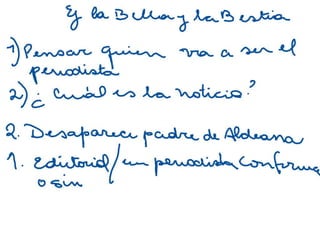 Ej la Bella y la Bestia
1) Pensar quien va a ser el
periodista
2) ¿Cuál es la noticia?
2. Desaparece padre de Aldeana
1. Editorial/un periodista conforma
o sin